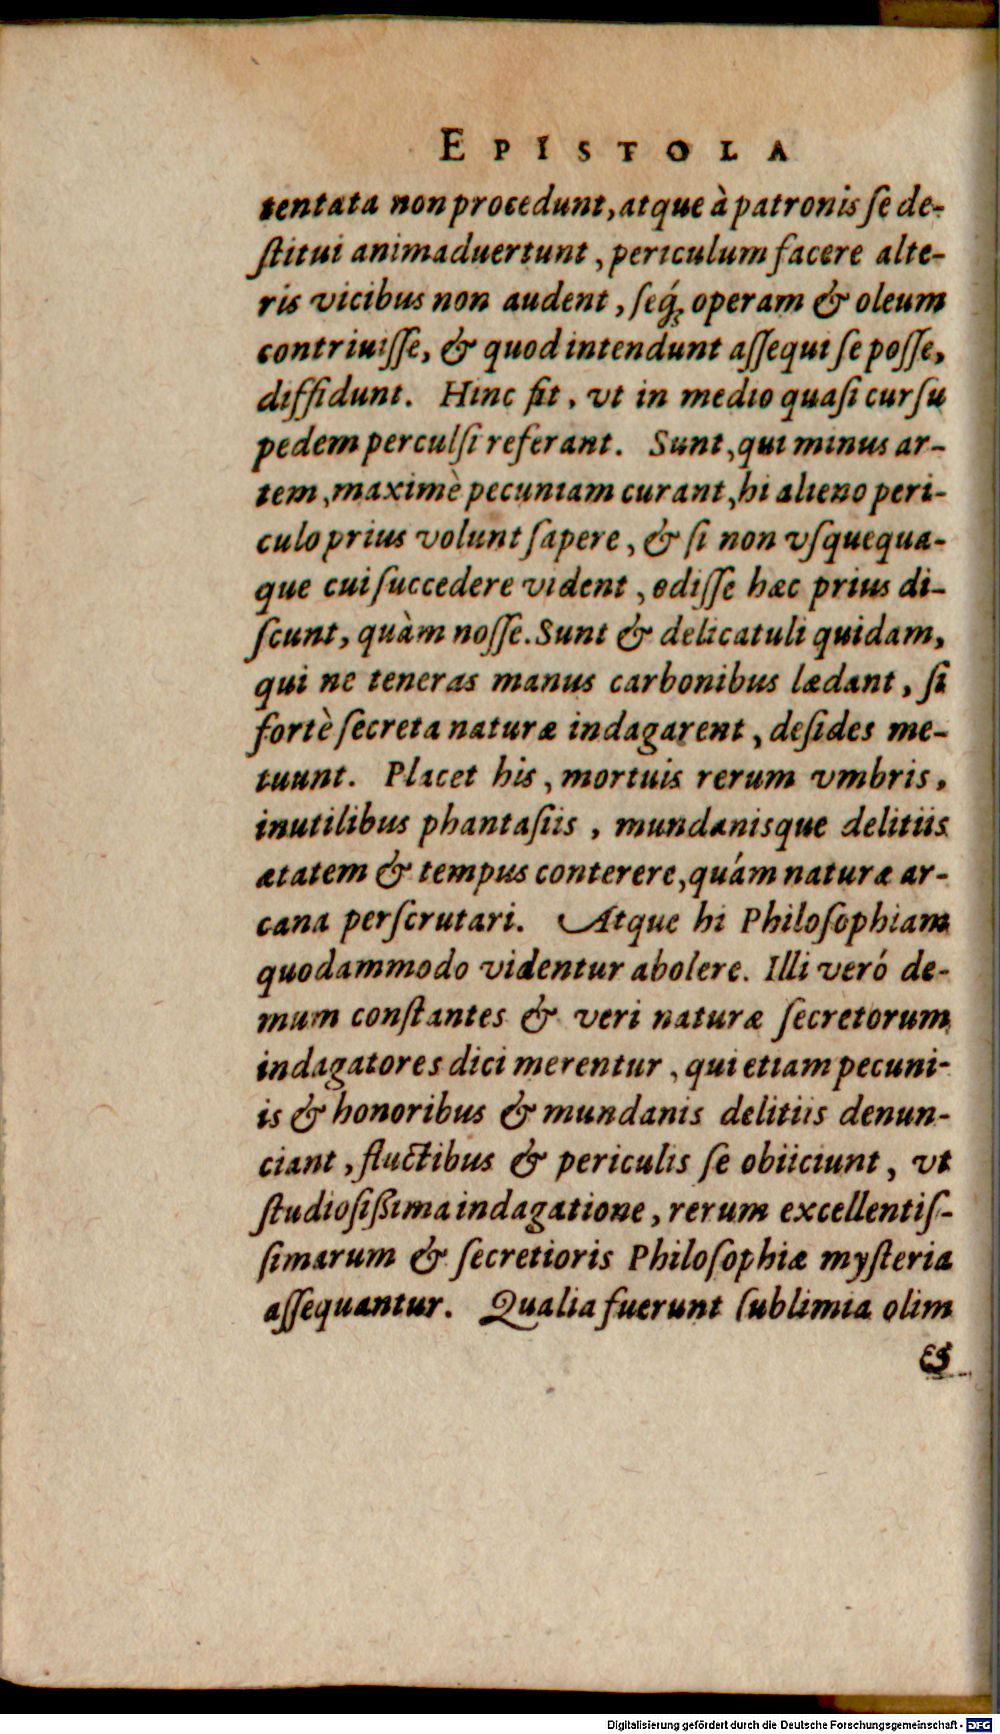 EPISTOLA
tentata non procedunt, atque à patronis ſe de-
ſtitui animaduertunt, periculum facere alte-
ris vicibus non audent, ſeq́ꝫ operam & oleum
contriuiſſe, & quod intendunt aſſequi ſe poſſe,
diffidunt. Hinc fit, vt in medio quaſi curſu
pedem perculſi referant. Sunt, qui minus ar-
tem, maximè pecuniam curant, hi alieno peri-
culo prius volunt ſapere, & ſi non vſquequa-
que cui ſuccedere vident, odiſſe hæc prius di-
ſcunt, quàm noſſe. Sunt & delicatuli quidam,
qui ne teneras manus carbonibus lædant, ſi
fortè ſecreta naturæ indagarent, deſides me-
tuunt. Placet his, mortuis rerum vmbris,
inutilibus phantaſiis, mundanisque delitiis
ætatem & tempus conterere, quám naturæ ar-
cana perſcrutari. Atque hi Philoſophiam
quodammodo videntur abolere. Illi veró de-
mum conſtantes & veri naturæ ſecretorum
indagatores dici merentur, qui etiam pecuni-
is & honoribus & mundanis delitiis denun-
ciant, fluctibus & periculis ſe obiiciunt, vt
ſtudioſißima indagatione, rerum excellentiſ-
ſimarum & ſecretioris Philoſophiæ myſteria
aſſequantur. Qualia fuerunt ſublimia olim
&
Digitalisierung gefördert durch die Deutsche Forschungsgemeinschaft - DFG